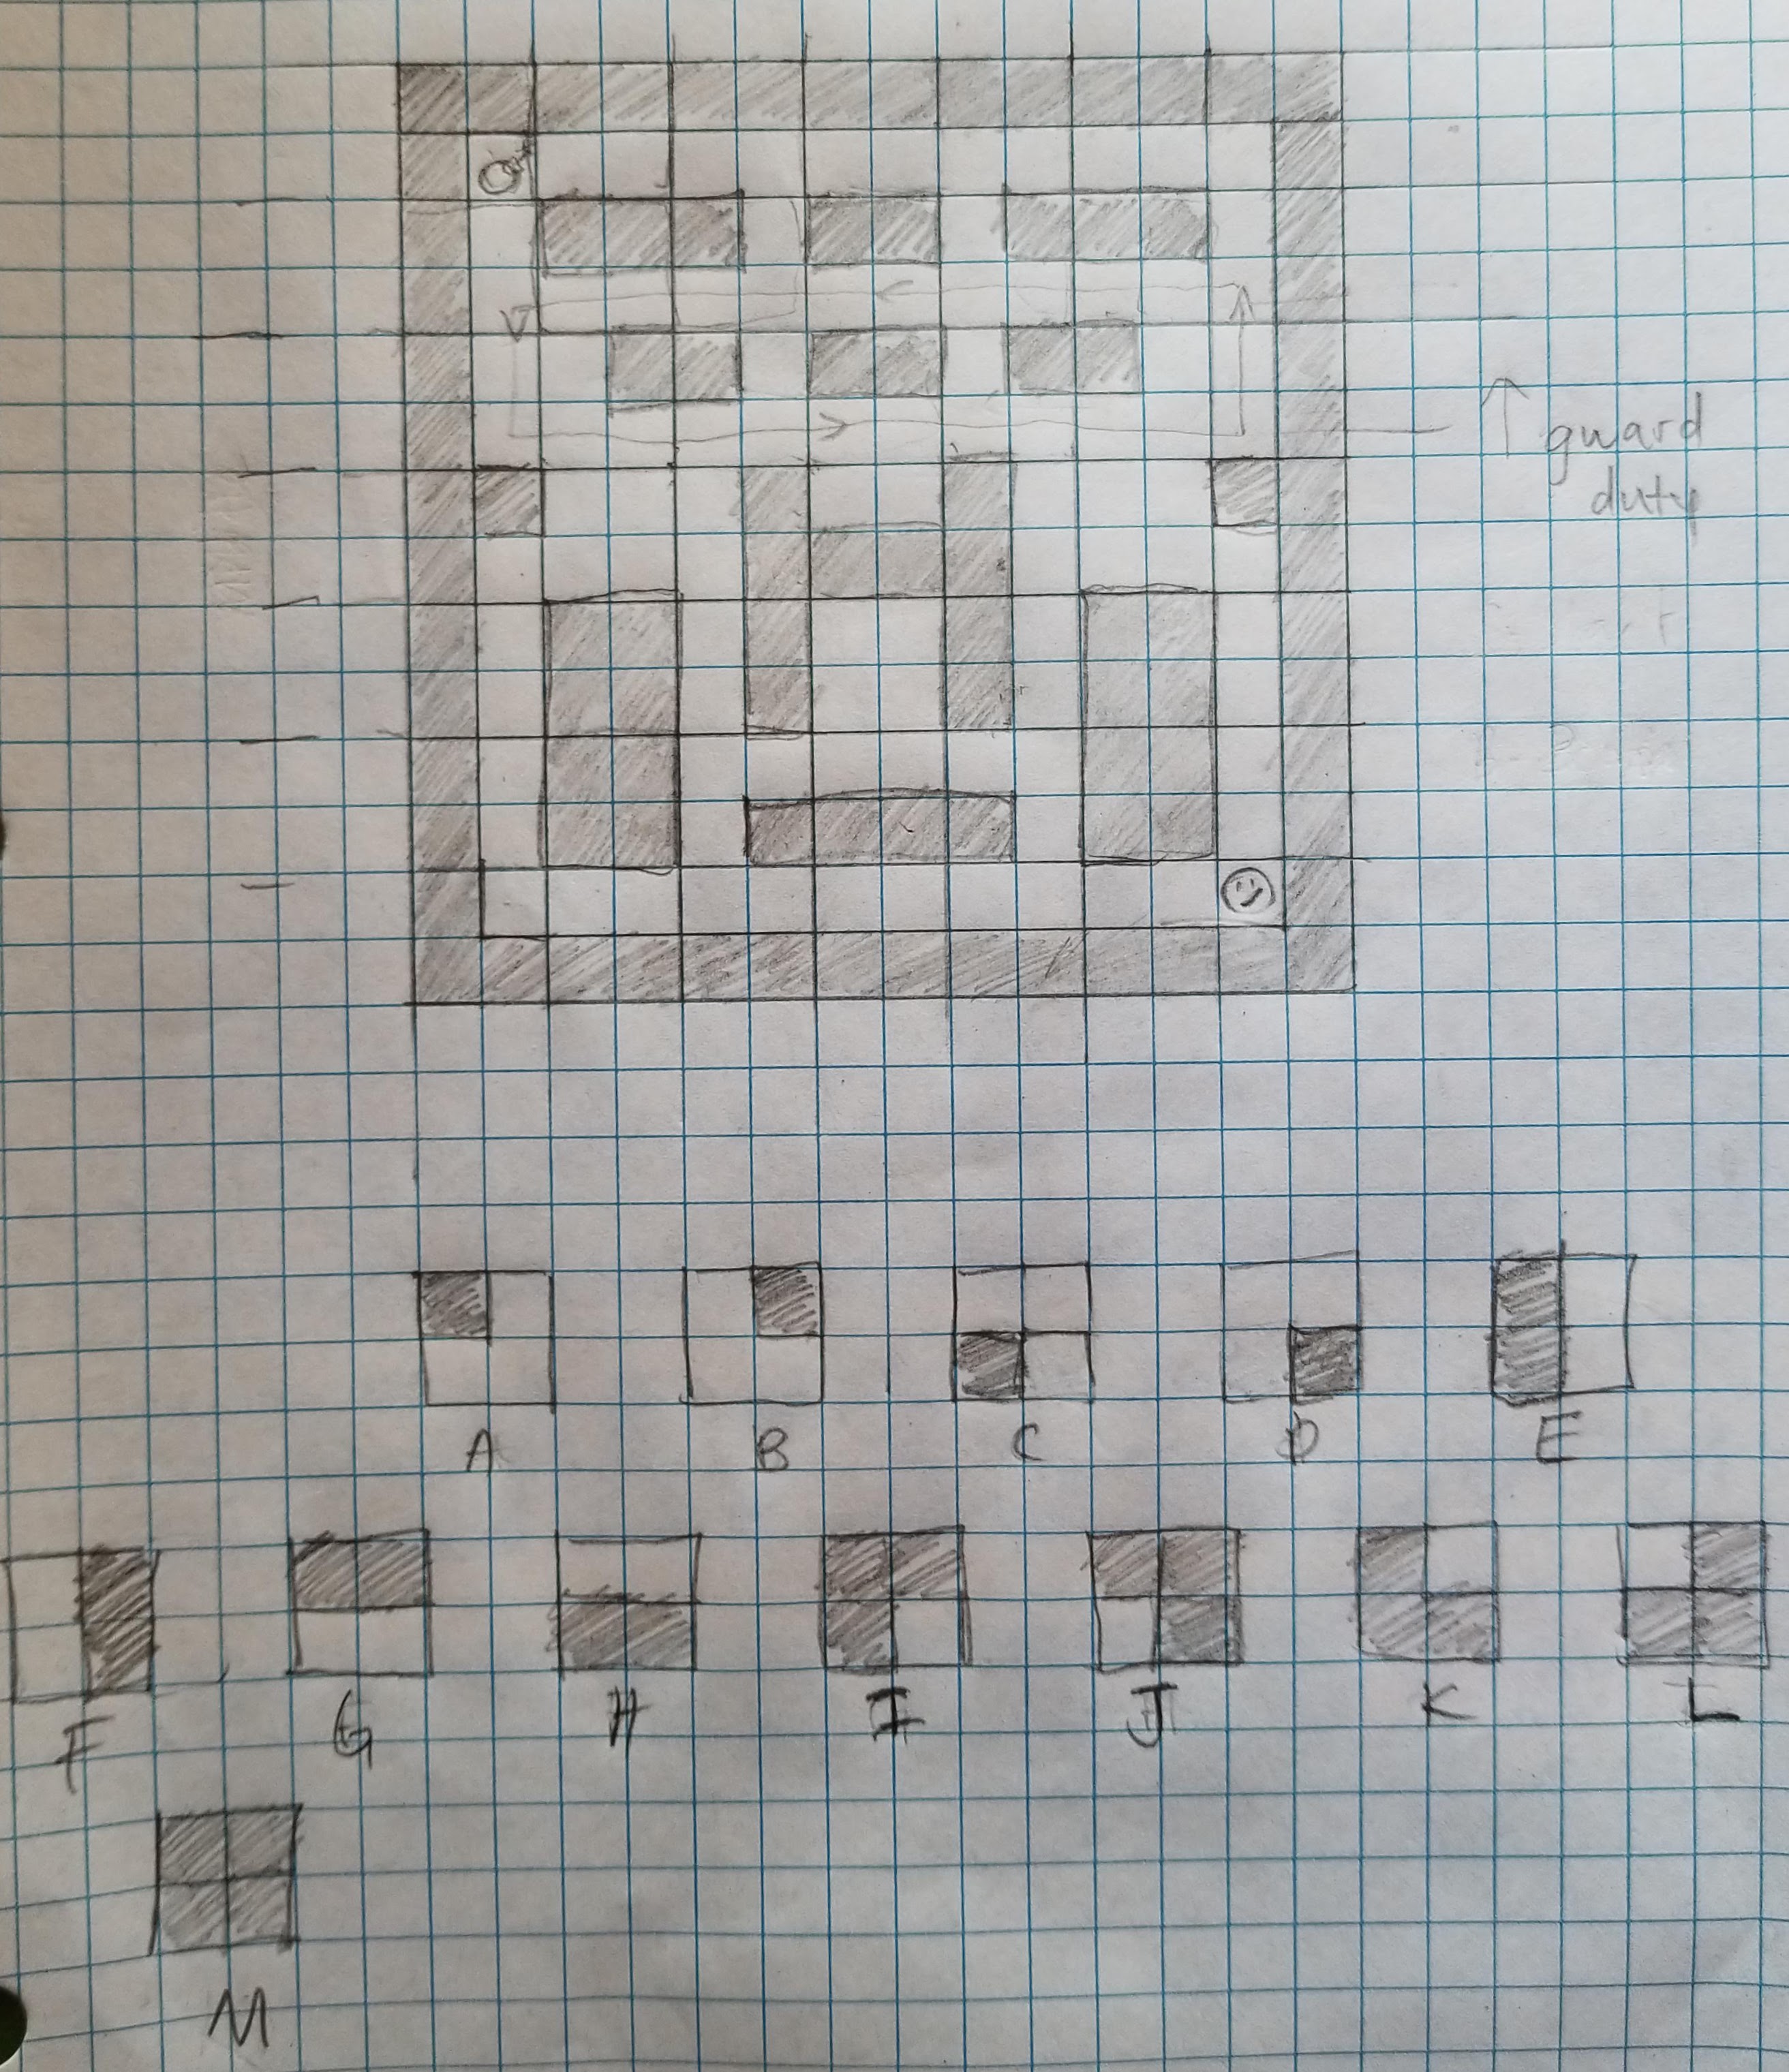 guard
duty
A B C D E
F G H I J K L
M